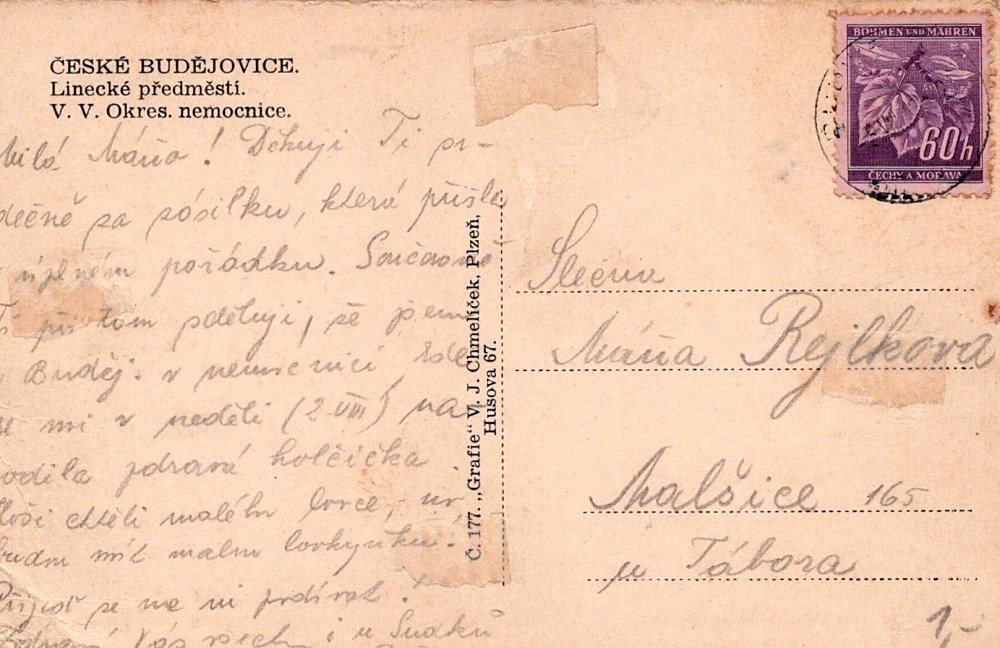 ČESKÉ BUDĚJOVICE.
Linecké předměstí.
V. V. Okres. nemocnice.
Milá Máňa! Děkuji Ti sr-
dečně za zásilku, která přišla
v úplném pořádku. Současně
Ti při tom sděluji, že jsem
v Buděj. v nemocnici, kde
se mi v neděli (2. VIII) na
rodila zdravá holčička.
Hoši chtěli malého
budou mít malou
Přijeď se na ni podívat!
Vás všech i u Sudků
Č. 177. „Grafie" V. J. Chmelíček, Plzeň,
Husova 67.
BÖHMEN UND MÄHREN
60h
ČECHY A MORAVA
Slečna
Máňa Rejlkova
Malšice 165
u Tábora
1,-